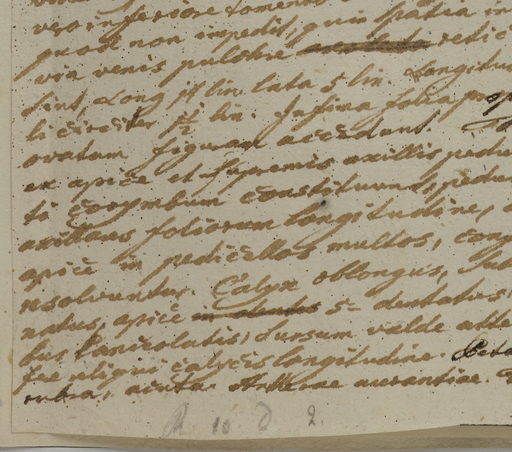 vero inferiore tomento
quod non impedit, quin spatia in
via venis pulchre retic
sint, Long lin. lata 5 lin. Longitu
li circiter lin. Infima folia prop
ovatam figuram accedunt.
ex apice et supremis axillis pedu
ti corymbum constituunt, pedun
axillares foliorum longitudine,
apice in pedicellos multos, cong
resolvuntur. Calyx oblongus,
natus, apice in dentes 5-dentatus,
bus lanceolatis, sursum valde atte
fere reliqui calycis longitudine. Peta
rubra, acuta. Antherae aurantiae.
10 d 2.